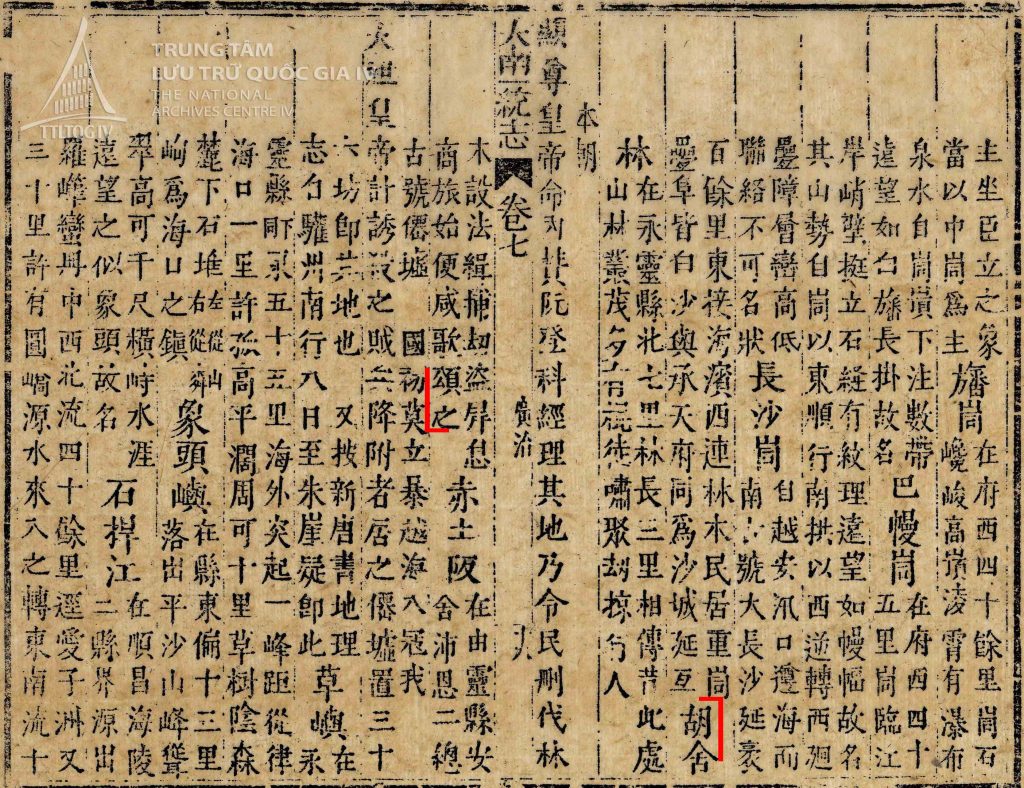 主坐臣立之象
當以中崗爲主
旛崗
在府西四十餘里崗石
巉峻高嶺淩霄有瀑布
泉水自崗嵿下注數帶
遠望如白旛長掛故名
巴幔崗
在府西四十
五里崗臨江
岸峭擘挺立石縫有紋理遠望如幔幅故名
其山勢自崗以東順行南拱以西逆轉西廻
疊障層巒高低
聯絡不可名狀
長沙崗
自越安汛口遵海而
南古號大長沙延袤
百餘里東接海濱西連林木民居重崗
疊阜皆白沙與承天府同爲沙城延亙
胡舍
林
在永靈縣北七里林長三里相傳昔此處
山林叢茂多有徒嘯聚刼掠行人
本朝
顯尊皇帝命內贊阮登科經理其地乃令民刪伐林
大南一統志 卷七 廣治 十八
木設法緝捕刼盜屏息
商旅始便咸歌頌之
赤土阪
在由靈縣安
舍沛恩二總
古號僊墟 國初莫立暴越海入冦我
太祖皇帝計誘殺之賊衆降附者居之僊墟置三十
六坊卽此地也 又披新唐書地理
志勺驩州南行八日至朱崖疑卽此
草嶼
在
永
靈縣東五十三里海外突起一峰距從律
海口一里許孤高平濶周可十里草樹陰森
麓下石堆左從山
右從粦
峋爲海口之鎭
象頭嶼
在縣東偏十三里
落出平沙山峰聳
翠高可千尺橫峙水涯
遠望之似象頭故名
石捍江
在順昌海陵
二縣界源出
羅峰蠻冊中西北流四十餘里逕愛子洲又
三十里許有圓嶠源水來入之轉東南流十
TRUNG TÂM
LƯU TRỮ QUỐC GIA IV
THE NATIONAL
ARCHIVES CENTRE IV
TTLTQG IV